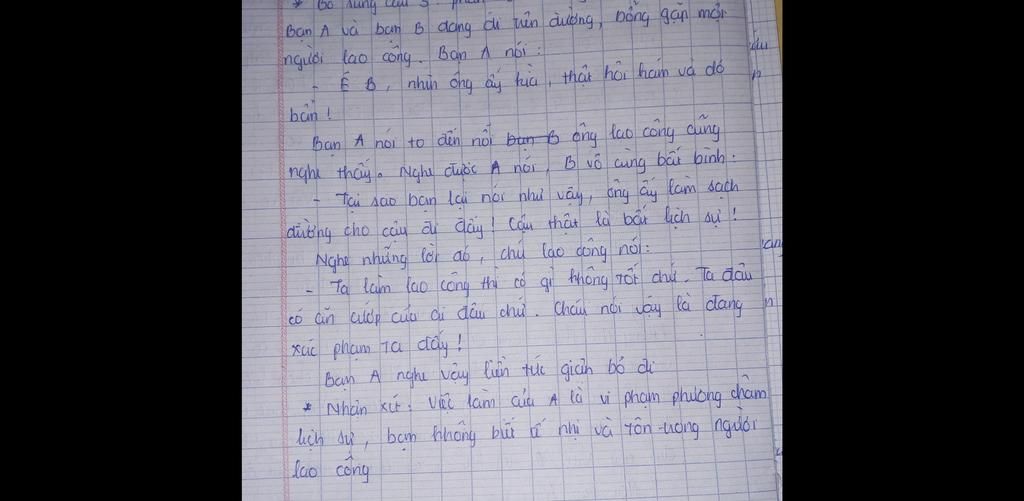 * Bổ sung câu 3. phần
Bạn A và bạn B đang đi trên đường, bỗng gặp một
người lao công. Bạn A nói:
- Ê B, nhìn ông ấy kìa, thật hôi hám và dơ
bẩn!
Bạn A nói to đến nỗi bạn B ông lao công cũng
nghe thấy. Nghe được A nói, B vô cùng bất bình:
- Tại sao bạn lại nói như vậy, ông ấy làm sạch
đường cho cậu đi đấy! Cậu thật là bất lịch sự!
Nghe những lời đó, chú lao công nói:
- Ta làm lao công thì có gì không tốt chứ. Ta đâu
có ăn cướp của ai đâu chứ. Cháu nói vậy là đang
xúc phạm ta đấy!
Bạn A nghe vậy liền tức giận bỏ đi
* Nhận xét: Việc làm của A là vi phạm phương châm
lịch sự, bạn không biết tế nhị và tôn trọng người
lao công